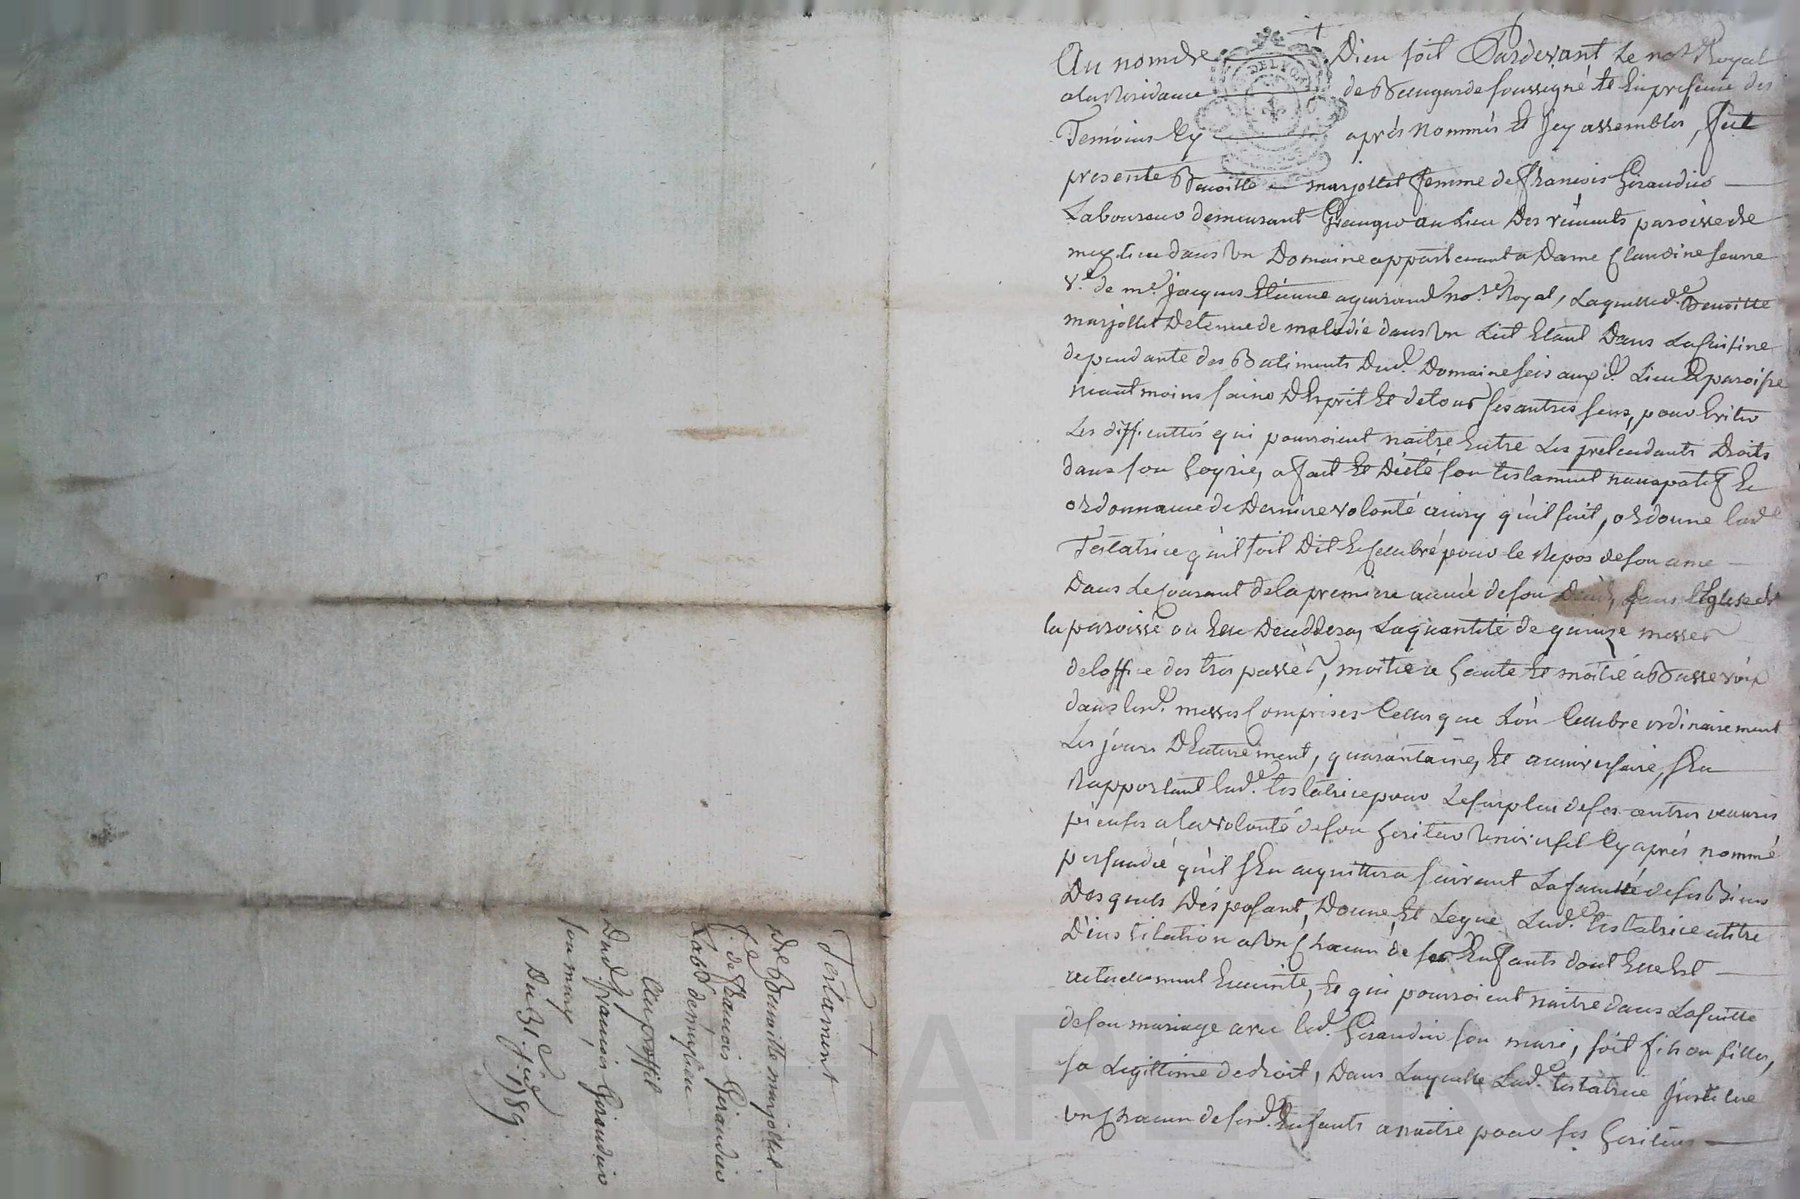 Au nom de Dieu soit Pardevant Le no.re Royal
a la Residance de Beauregarde soussigné et En presence des
Temoins Cy après nommés Et Icy assemblés, fut
presente Benoitte marjollet femme de françois Giraudier
Laboureur demeurant Granger au Lieu Des paroisse de
mizerieu dans Un Domaine appartenant a Dame Claudine
V.e de m.e Jacques Etienne no.re Royal, Laquelle d.e Benoitte
marjollet Detenue de maladie dans Un Lict Etant Dans La Cuisine
dependante des Batiments Dud. Domaine seis aux d. Lieu & paroisse
neantmoins saine D'Esprit Et de tous ses autres sens, pour Eviter
Les difficultés qui pourroient naitre Entre Les pretendants Droits
dans son hoyrie, a fait Et Dicté son testament nuncupatif Et
ordonnance de Derniere volonté ainsy qu'il suit, ordonne lad.e
Testatrice qu'il soit Dit Et Celebré pour le Repos de son ame
Dans Le Courant de la premiere année de son Décès, dans l'Eglise de
la paroisse ou Elle Deceddera, La quantité de quinze messes
de loffice des trépassés, moitié a haute Et moitié a Basse voix
dans lesd. messes Comprises Celles que L'on Celebre ordinairement
Les jours D'Enterrement, quarantaine, Et anniversaire, s'En
Rapportant lad.e testatrice pour Le surplus de ses œuvres
pieuses a la volonté de son heritier Universel Cy après nommé
persuadée qu'il s'En acquittera suivant La faculté de ses Biens
Desquels Disposant, Donne Et Legue Lad.e testatrice a titre
D'institution a Un Chacun de ses Enfants dont Elle Est
actuellement Enceinte, Et qui pourroient naitre dans La suitte
de son mariage avec led. Giraudier son mari, soit fils ou filles,
sa Legittime de droit, Dans Laquelle Lad.e testatrice Institue
un Chacun de sesd. Enfants a naitre pour ses heritiers
Testament
de Benoitte marjollet
f.e de françois Giraudier
Lab.r de mizerieu
Au proffit
Dud. françois Giraudier
son mary
Du 31 1789.